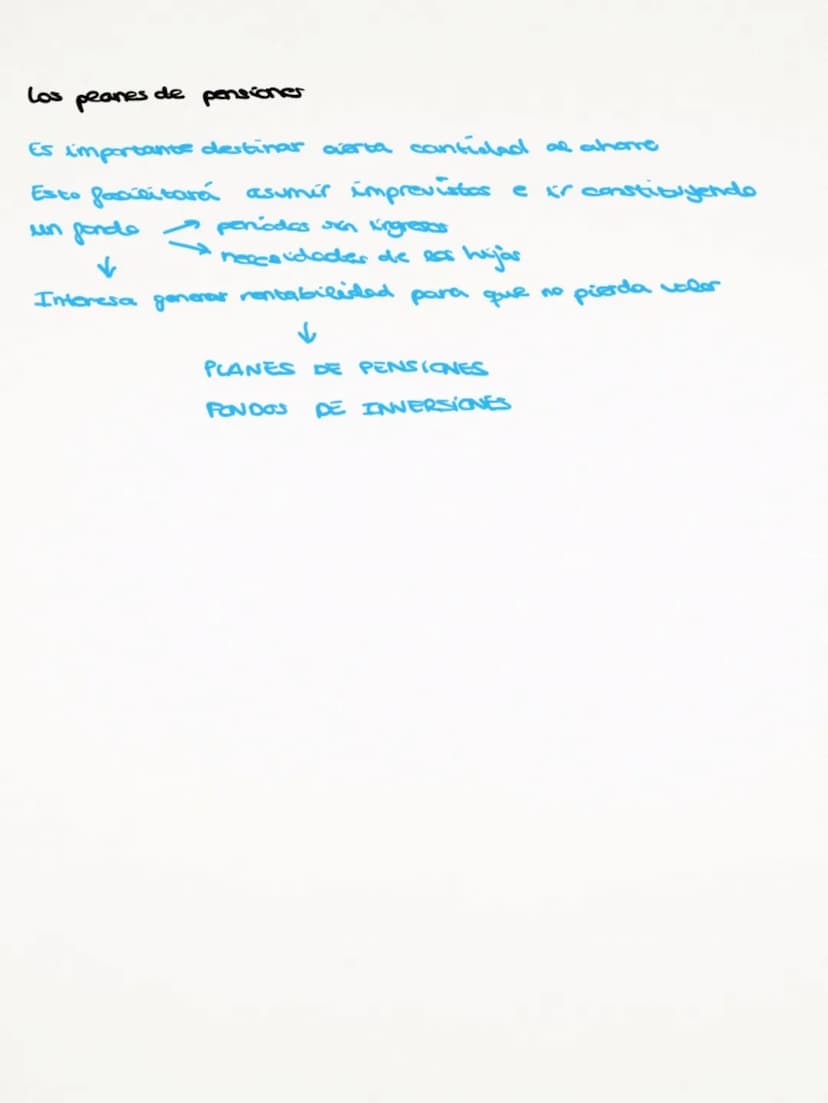 Los planes de pensiones
Es importante destinar cierta cantidad al ahorro
Esto facilitará asumir imprevistos e ir constituyendo
un fondo ↗ periodos sin ingresos
↘ necesidades de los hijos
↓
Interesa generar rentabilidad para que no pierda valor
↓
PLANES DE PENSIONES
FONDOS DE INVERSIONES